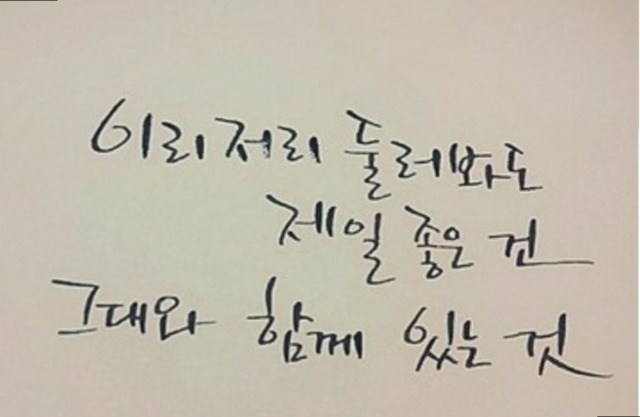 이리저리 둘러봐도
제일 좋은 건
그대와 함께 있는 것